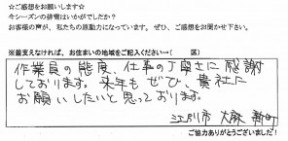 ☆ご感想をお願いします☆
今シーズンの排雪はいかがでしたか？
お客様の声が、私たちの原動力になっています。ぜひ、ご感想をお聞かせ下さい。
※差支えなければ、お住まいの地域をご記入ください→（　　区）
作業員の態度、仕事の丁寧さに感謝
しております。来年もぜひ、貴社に
お願いしたいと思っております。
江別市 大麻 新町
ご協力ありがとうございました！